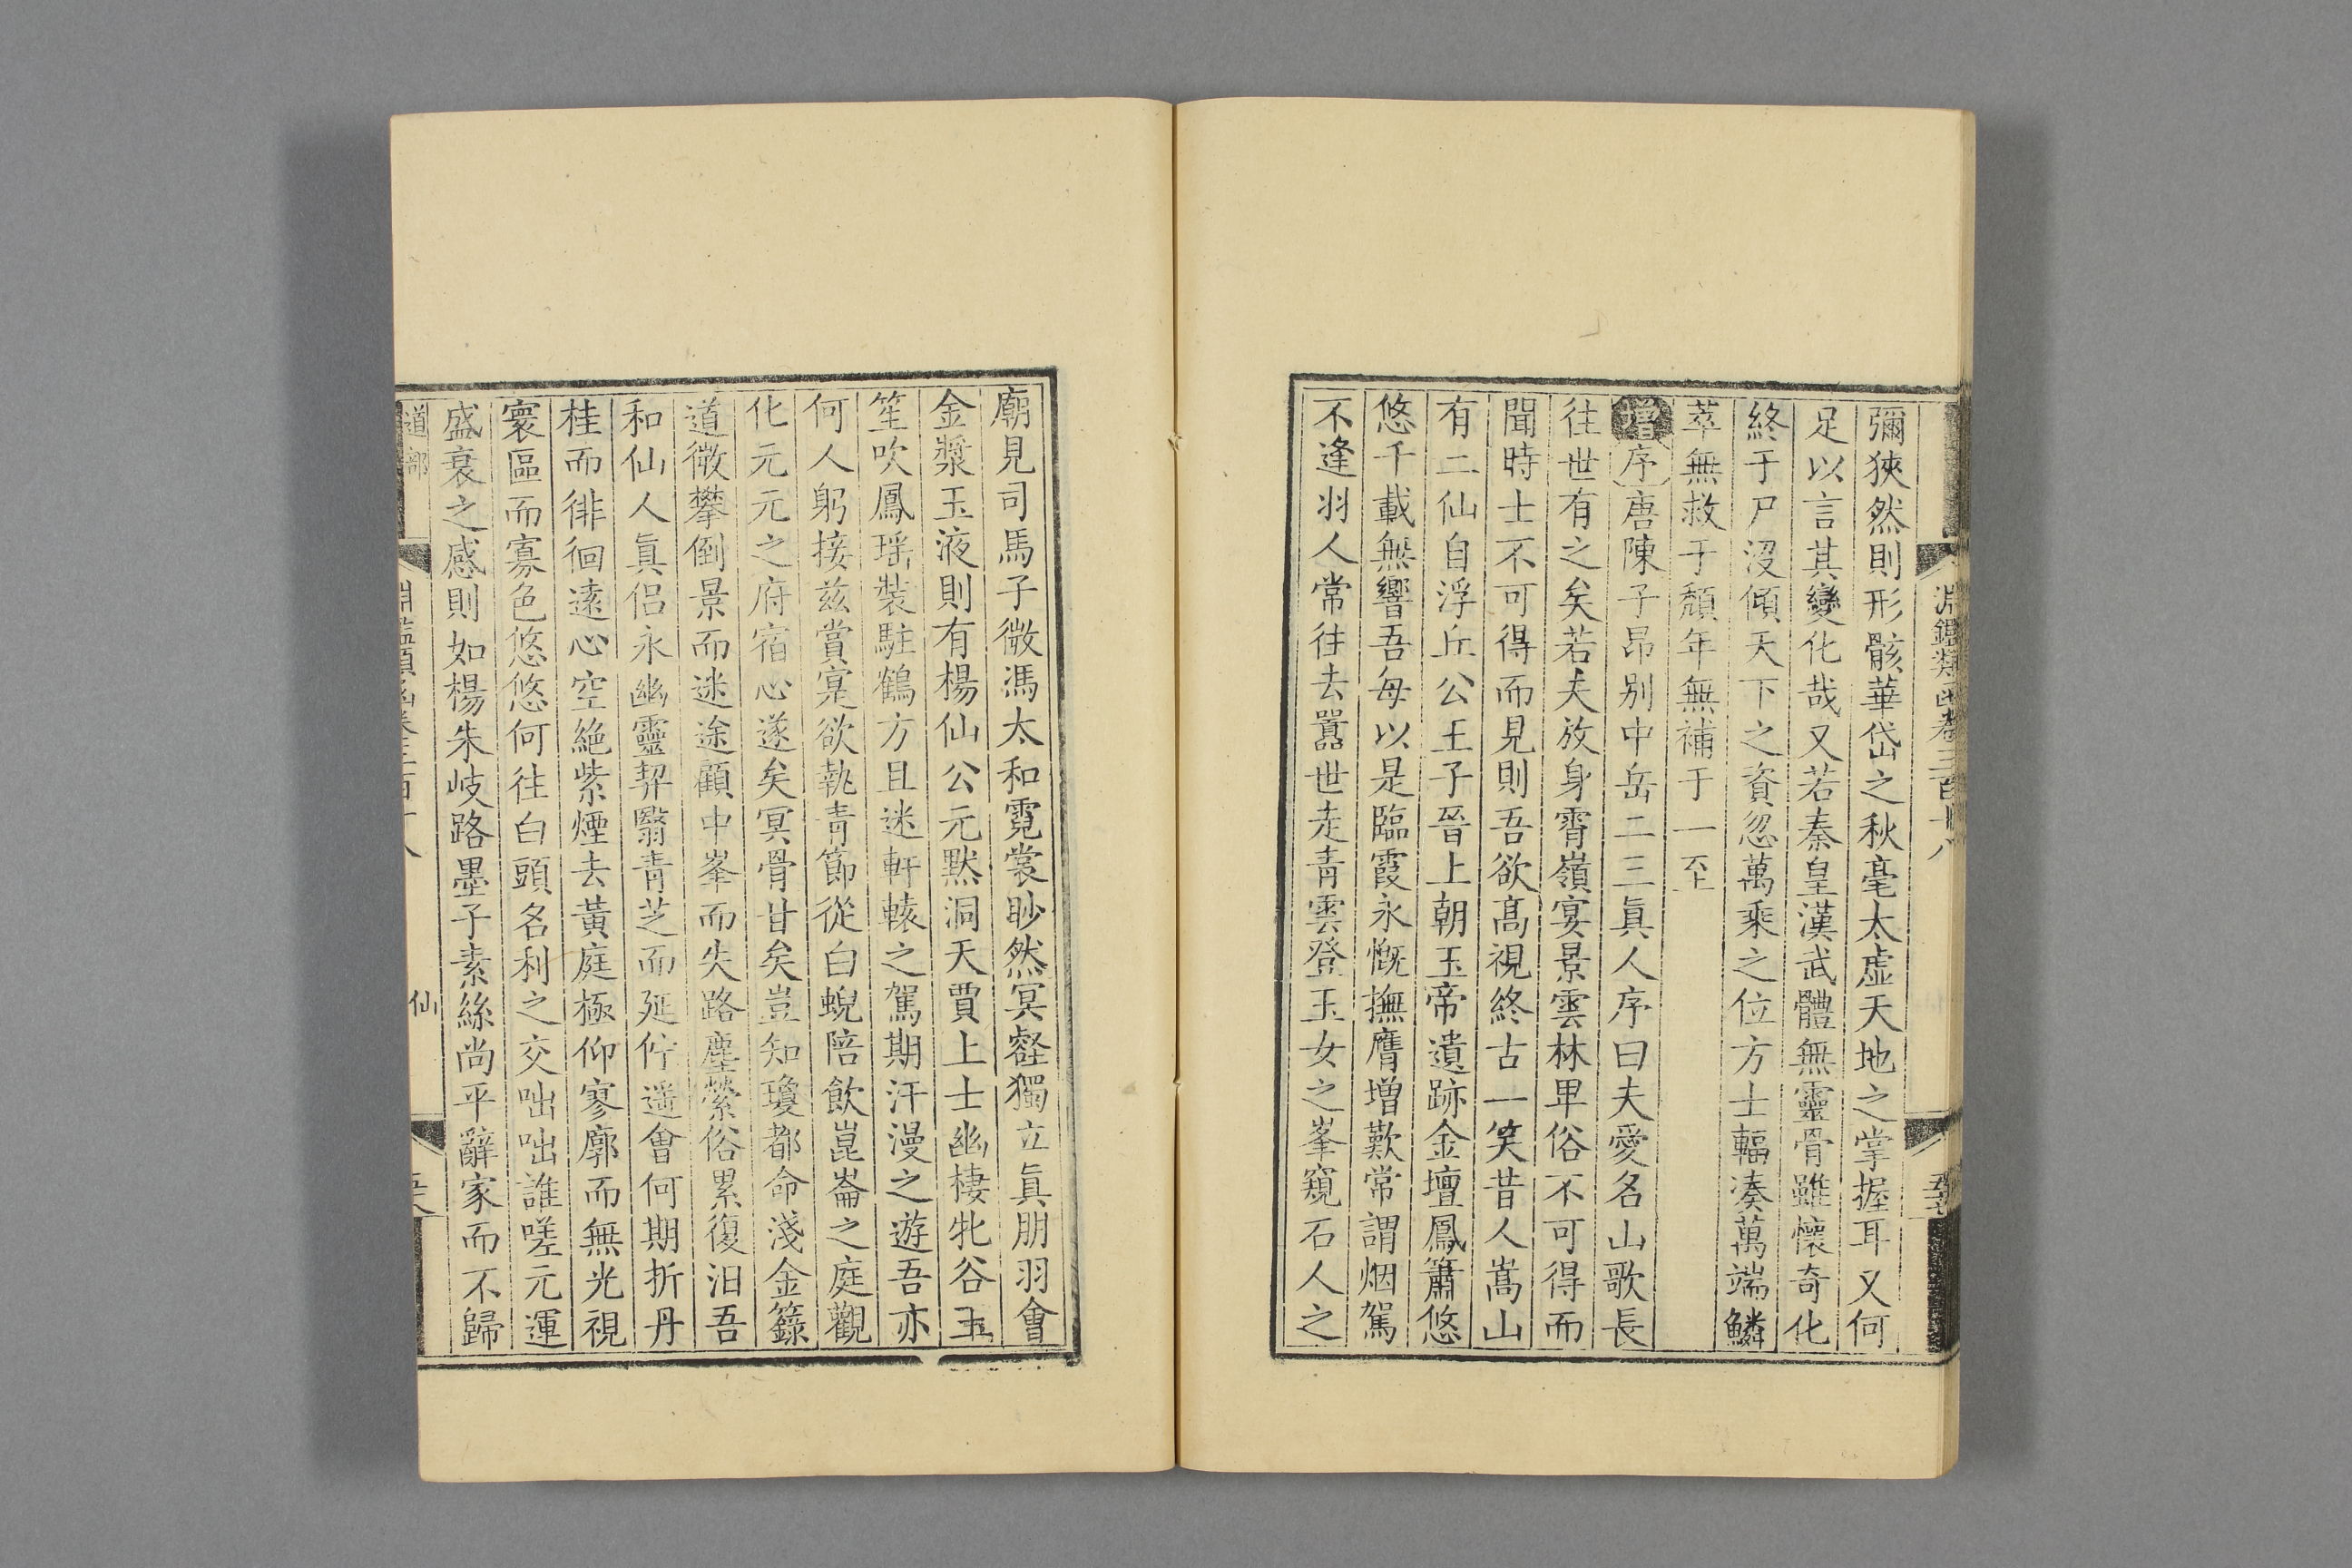 彌狹然則形骸華岱之秋毫太虛天地之掌握耳又何
足以言其變化哉又若秦皇漢武體無靈骨雖懷奇化
終于尸沒傾天下之資忽萬乘之位方士輻湊萬端鱗
萃無救于頹年無補于一至上
增序唐陳子昂別中岳二三眞人序曰夫愛名山歌長
往世有之矣若夫放身霄嶺宴景雲林卑俗不可得而
聞時士不可得而見則吾欲高視終古一笑昔人嵩山
有二仙自浮丘公王子晉上朝玉帝遺跡金壇鳳簫悠
悠千載無響吾每以是臨霞永慨撫膺增歎常謂烟駕
不逢羽人常往去囂世走青雲登玉女之峯窺石人之
廟見司馬子微馮太和霓裳眇然冥壑獨立眞朋羽會
金漿玉液則有楊仙公元默洞天賈上士幽棲牝谷玉
笙吹鳳瑶裝駐鶴方且迷軒轅之駕期汗漫之遊吾亦
何人躬接茲賞寔欲執青節從白蜺陪飲崑崙之庭觀
化元元之府宿心遂矣冥骨甘矣豈知瓊都命淺金籙
道微攀倒景而迷途顧中峯而失路塵縈俗累復汨吾
和仙人眞侶永幽靈契翳青芝而延佇遥會何期折丹
桂而徘徊遠心空絶紫煙去黃庭極仰寥廓而無光視
寰區而寡色悠悠何往白頭名利之交咄咄誰嗟元運
盛衰之感則如楊朱岐路墨子素絲尚平辭家而不歸
道部
仙